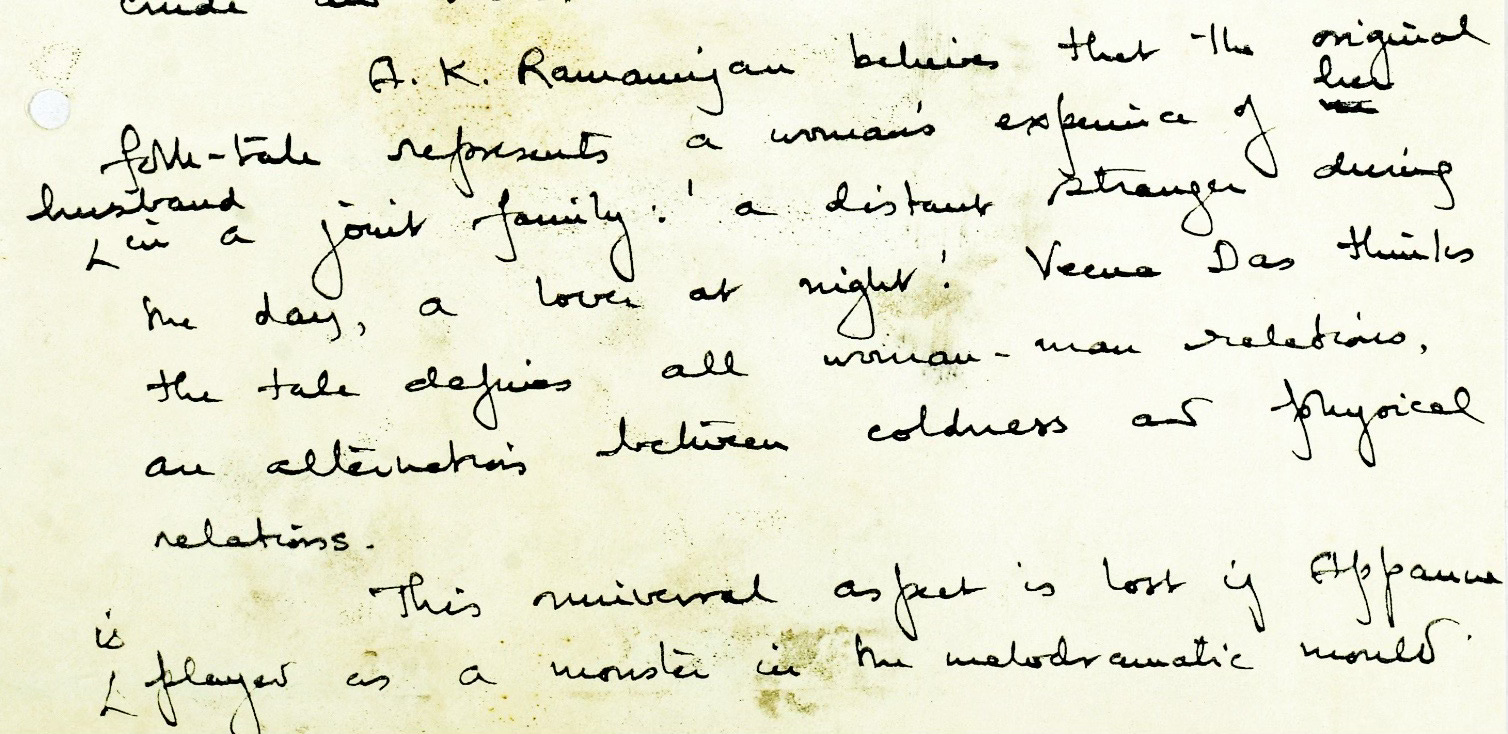 A. K. Ramanujan believes that the original
folk-tale represents a woman's experience of her
husband
in a joint family: 'a distant stranger during
the day, a lover at night.' Veena Das thinks
the tale defines all woman-man relations,
an alternation between coldness and physical
relations.
This universal aspect is lost if Appanna
is
played as a monster in the melodramatic mould